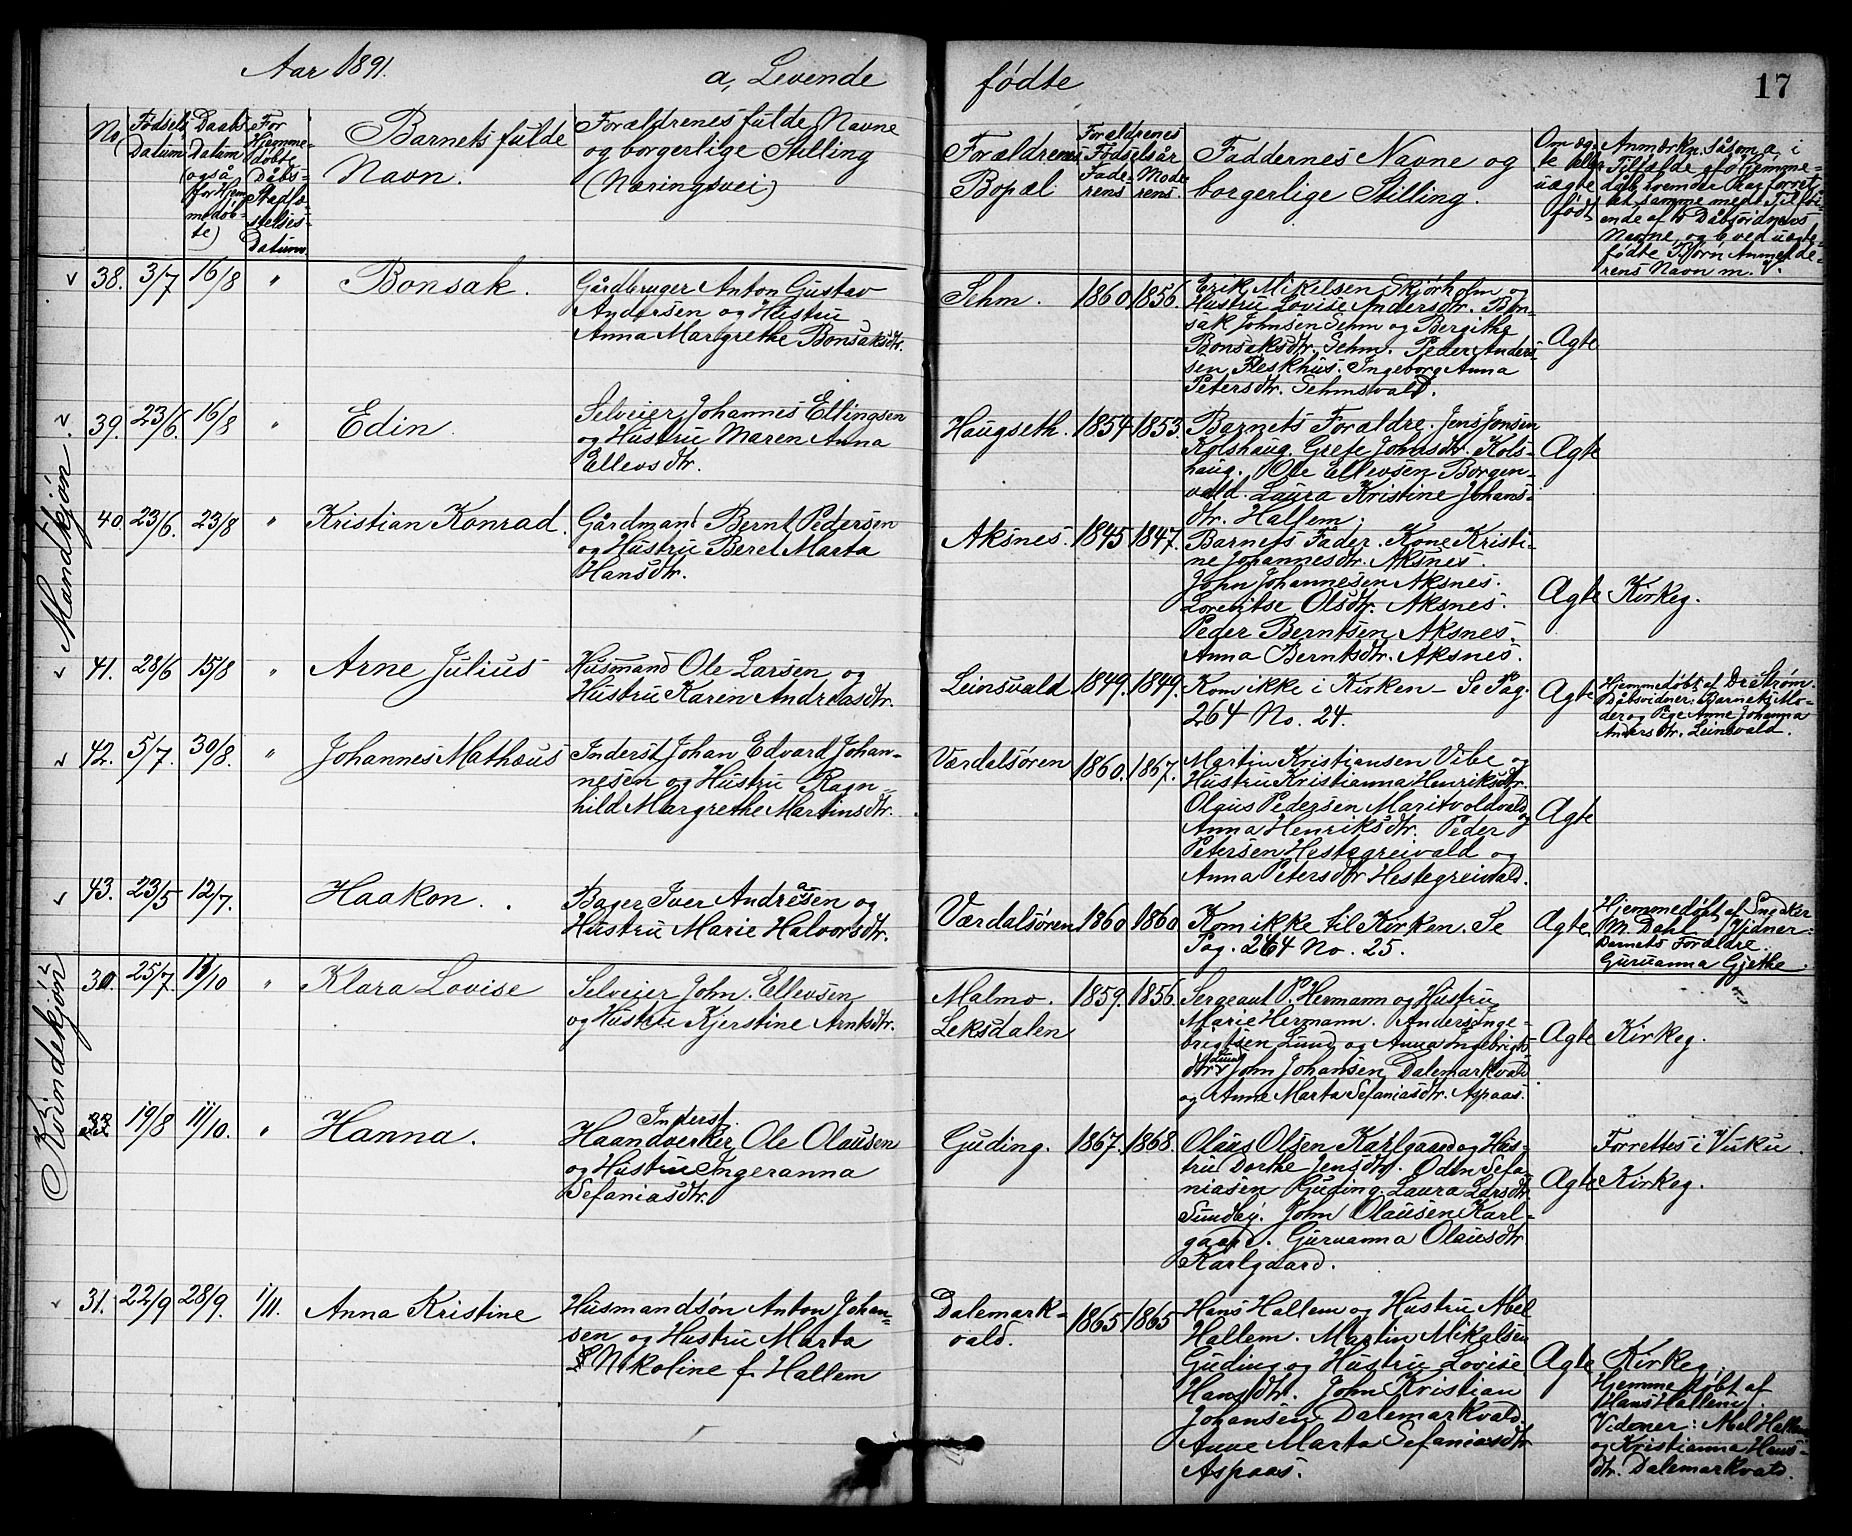 Aar 1891.
a, Levende
fødte
17
No
Fødsels
Datum
Daabs
Datum
(også
for Hjem-
medøb-
te)
For
Hjemme-
døbte
Dåbs-
Stadfæ-
stelses-
Datum
Barnets fulde
Navn.
Forældrenes fulde Navne
og borgerlige Stilling
(Næringsvei)
Forældrenes
Bopæl
Forældrenes
Fødselsår
Fade-
rens
Mode-
rens.
Faddernes Navne og
borgerlige Stilling.
Om æg-
te eller
uægte
født
Anmærkn. Såsom a i
Tilfælde af Hjemme-
dåb hvem der har forret-
tet samme med Tilføi-
ende af to Dåbsvidners
Navne, og b, ved uægte
fødte Børn Anmelde-
rens Navn m. V.
Mandkjøn.
38. 3/7 16/8 " Bonsak.
Gårdbruger Anton Gustav
Andersen og Hustru
Anna Margrethe Bonsaksdtr.
Sehm. 1860 1856.
Erik Mikelsen Skjørholm og
Hustru Lovise Andersdtr. Bon-
sak Johnsen Sehm og Bergithe
Bonsaksdtr. Sehm. Peder Anders-
sen Fleskhus. Ingeborg Anna
Petersdtr. Sehmsvald.
Ægte
39. 23/6. 16/8 " Edin
Selveier Johannes Ellingsen
og Hustru Maren Anna
Ellevsdtr.
Haugseth. 1854 1853.
Barnets Forældre. Jens Jonsen
Kolshaug. Grete Johnsdtr. Kols-
haug. Ole Ellevsen Borgen-
vald. Laura Kristine Johans-
dtr. Hallem.
Ægte
40. 23/6. 23/8 " Kristian Konrad.
Gårdmand Bernt Pedersen
og Hustru Beret Marta
Hansdtr.
Aksnes. 1845 1847.
Barnets Fader. Kone Kristi-
ne Johannesdtr. Aksnes.
John Johannesen Aksnes.
Lorentse Olsdtr. Aksnes.
Peder Berntsen Aksnes.
Anna Berntsdtr. Aksnes.
Ægte Kirkeg.
41. 28/6 15/8 " Arne Julius
Husmand Ole Larsen og
Hustru Karen Andreasdtr.
Leinsvald 1849. 1849.
Kom ikke i Kirken - Se Pag.
264 No. 24.
Ægte
Hjemmedøbt af Dr Strøm.
Dåbsvidner: Barnets Mo-
der og Pige Anne Johanna
Andersdtr. Leinsvald.
42. 5/7. 30/8. " Johannes Mathæus
Inderst Johan Edvard Johan-
nesen og Hustru Ragn-
hild Margrethe Martinsdtr.
Værdalsøren 1860. 1867.
Martin Kristiansen Vibe og
Hustru Kristianna Henriksdtr.
Olaus Pedersen Maritvoldvald og
Anna Henriksdtr. Peder
Petersen Hestegreivald og
Anna Petersdtr Hestegreivald.
Ægte
43. 23/5 12/7. Haakon.
Bager Iver Andreasen og
Hustru Marie Halvorsdtr.
Værdalsøren 1860 1860
Kom ikke til Kirken. Se
Pag. 264 No. 25.
Ægte.
Hjemmedøbt af Snedker
M. Dahl Vidner:
Barnets Forældre.
Guruanna Gjethe.
Kvindekjøn
30. 25/7. 11/10 " Klara Lovise
Selveier John. Ellevsen
og Hustru Kjerstine Arntsdtr.
Malmo.
Leksdalen
1859. 1856.
Sergeant P. Hermann og Hustru
Marie Hermann. Anders Inge-
brigtsen Lund og Anna Ingebrigt-
dtr. Lund John Johansen Dalemarkvald
og Anne Marta Sefaniasdtr. Aspaas.
Ægte Kirkeg.
19/8 11/10. " Hanna.
Inderst.
Haandverker Ole Olausen
og Hustru Ingeranna
Sefaniasdtr.
Guding. 1867. 1868.
Olaus Olsen Karlgaard og Hus-
tru Dorthe Jensdtr. Oden Sefa-
niasen Guding. Laura Larsdtr.
Sundby. John Olausen Karl-
gaard. Guruanna Olausdtr
Karlgaard.
Forrettes i Vuku.
Ægte Kirkeg.
31. 22/9 28/9. 1/11. Anna Kristine
Husmandsøn Anton Johan-
sen og Hustru Marta
Nikoline f. Hallem
Dalemark-
vald.
1865 1865
Hans Hallem og Hustru Abel
Hallem. Martin Mikalsen
Guding og Hustru Lovise
Hansdtr. John Kristian
Johansen Dalemarkvald.
Anne Marta Sefaniasdtr
Aspaas.
Ægte Kirkeg.
Hjemmedøbt af
Hans Hallem.
Vidner: Abel Hallem
og Kristianna Hans-
dtr. Dalemarkvald.